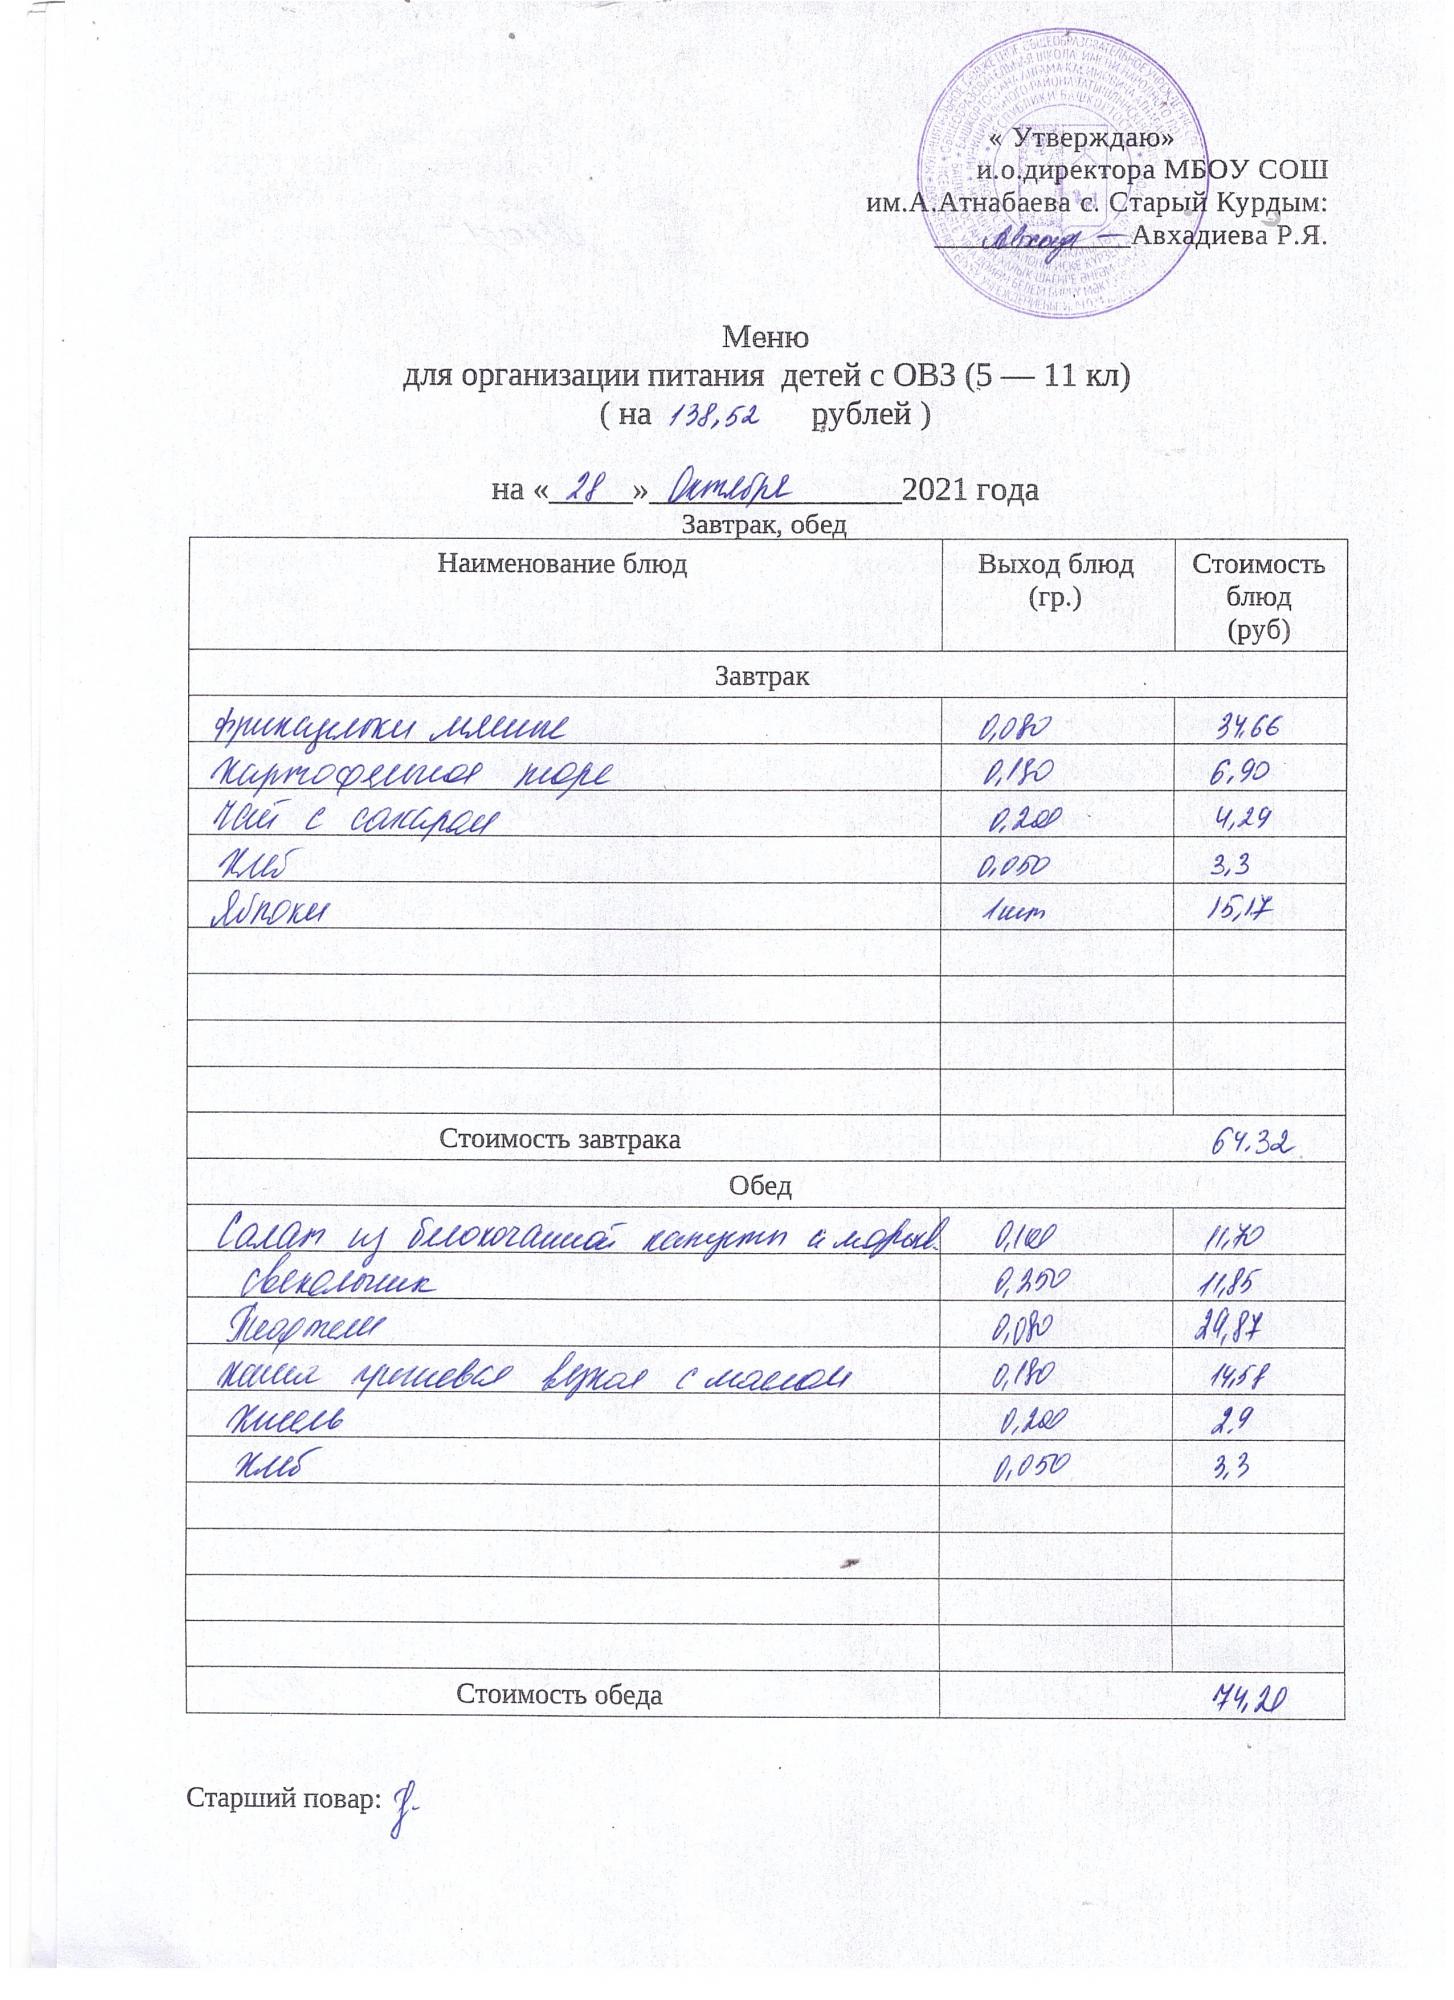 « Утверждаю»
и.о.директора МБОУ СОШ
им.А.Атнабаева с. Старый Курдым:
Авхадиева Р.Я.
Меню
для организации питания детей с ОВЗ (5 — 11 кл)
( на 138,52 рублей )
на « 28 » Октября 2021 года
Завтрак, обед
Наименование блюд Выход блюд (гр.) Стоимость блюд (руб)
Завтрак
Фрикадельки мясные 0,080 34,66
Картофельное пюре 0,180 6,90
Чай с сахаром 0,200 4,29
Хлеб 0,050 3,3
Яблоки 1шт 15,17
Стоимость завтрака 64.32
Обед
Салат из белокочанной капусты с морков. 0,100 11,70
Свекольник 0,250 11,85
Тефтели 0,080 29,87
Каша гречневая вязкая с маслом 0,180 14,58
Кисель 0,200 2,9
Хлеб 0,050 3,3
Стоимость обеда 74,20
Старший повар: